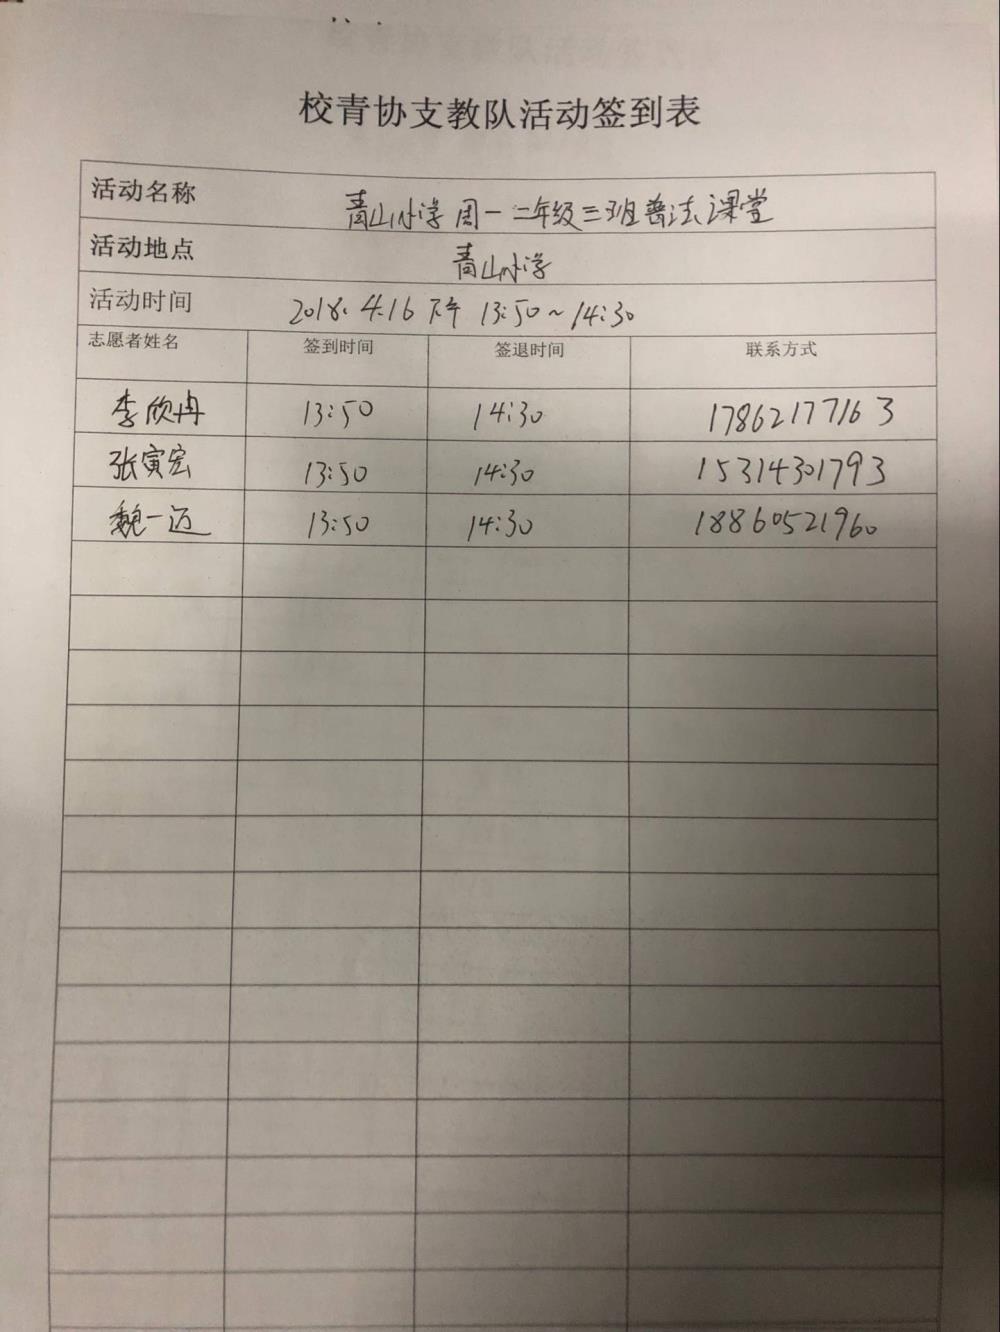 校青协支教队活动签到表
活动名称 青山小学周一二年级三班普法课堂
活动地点 青山小学
活动时间 2018.4.16 下午 13:50~14:30
志愿者姓名 签到时间 签退时间 联系方式
李欣冉 13:50 14:30 17862177163
张寅宏 13:50 14:30 15314301793
魏一迈 13:50 14:30 18860521960